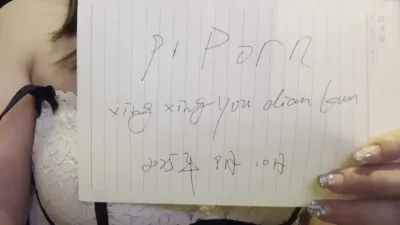 pi Porn
xing xing you dian kun
2025年 9月 10日